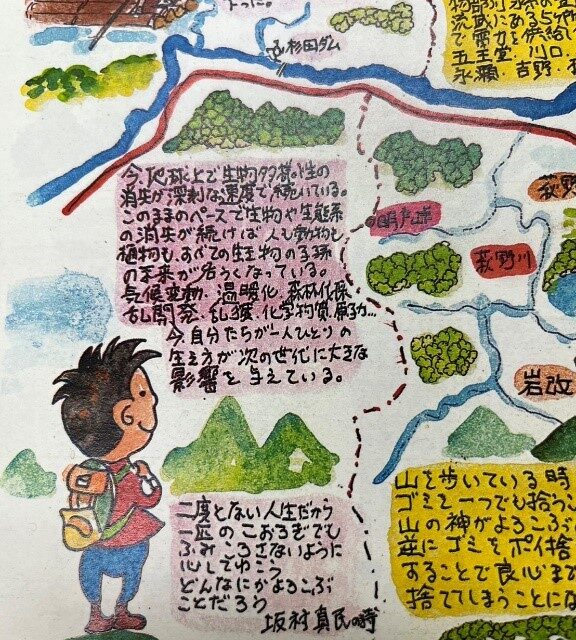 杉田ダム
五王堂、川口、
永瀬、吉野、
今、地球上で生物多様性の
消失が、深刻な速度で、続いている。
このままのペースで生物や生態系
の消失が続けば人も動物も
植物も、すべての生物の子孫
の未来が危うくなっている。
気候変動、温暖化、森林伐採、
乱開発、乱獲、化学物質、原子力…
今、自分たちが一人ひとりの
生き方が次の世代に大きな
影響を与えている。
萩野
萩野川
岩改
山を歩いている時
ゴミを一つでも拾うこ
山の神がよろこぶ
逆にゴミをポイ捨
することで良心ま
捨ててしまうことにな
二度とない人生だから
一匹のこおろぎでも
ふみころさないように
心してゆこう
どんなにかよろこぶ
ことだろう
坂村真民の詩